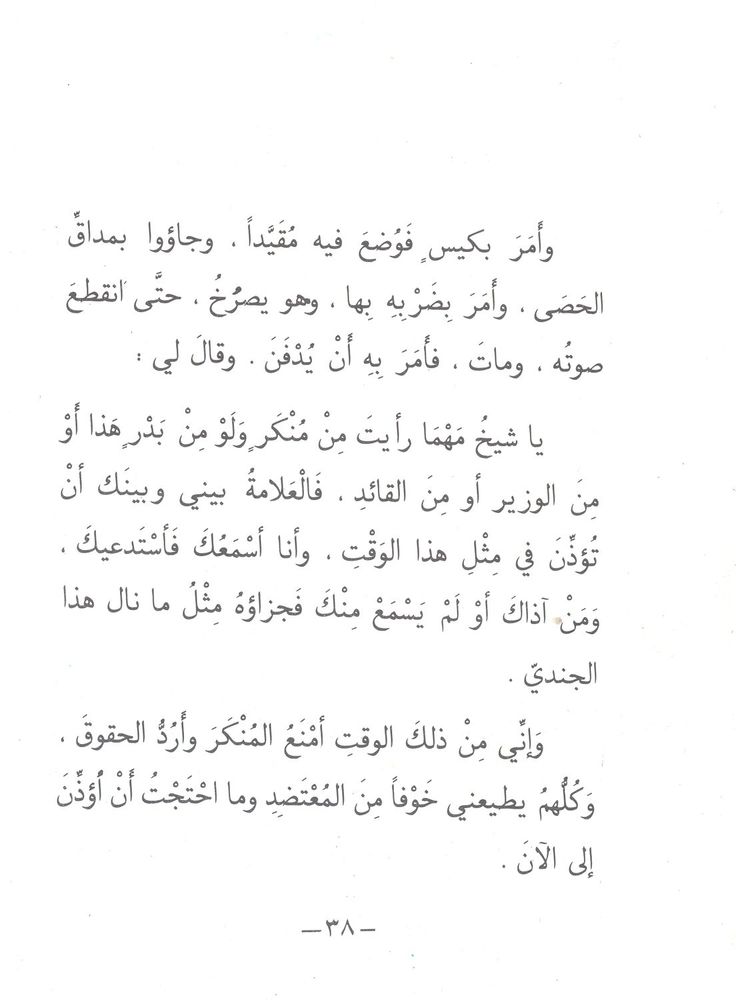 وأَمَرَ بكيسٍ فَوُضعَ فيه مُقَيَّداً ، وجاؤوا بمداقِّ
الحَصَى ، وأَمَرَ بِضَرْبِهِ بِها ، وهو يصرُخُ ، حتَّى انقطعَ
صوتُه ، وماتَ ، فأَمَرَ بِهِ أَنْ يُدْفَنَ . وقالَ لي :
يا شيخُ مَهْمَا رأيتَ مِنْ مُنْكَرٍ وَلَوْ مِنْ بَدْرٍ هَذا أَوْ
مِنَ الوزير أو مِنَ القائدِ ، فَالْعَلامةُ بيني وبينَك أنْ
تُؤذِّنَ في مِثْلِ هذا الوَقْتِ ، وأنا أسْمَعُكَ فَأسْتَدعيكَ ،
وَمَنْ آذاكَ أوْ لَمْ يَسْمَعْ مِنْكَ فَجزاؤهُ مِثْلُ ما نال هذا
الجنديّ .
وَإنِّي مِنْ ذلكَ الوقتِ أمْنَعُ المُنْكَرَ وأَرُدُّ الحقوقَ ،
وَكُلُّهمُ يطيعني خَوْفاً مِنَ المُعْتَضدِ وما احْتَجْتُ أَنْ أُؤذِّنَ
إلى الآنَ .
– ٣٨ –